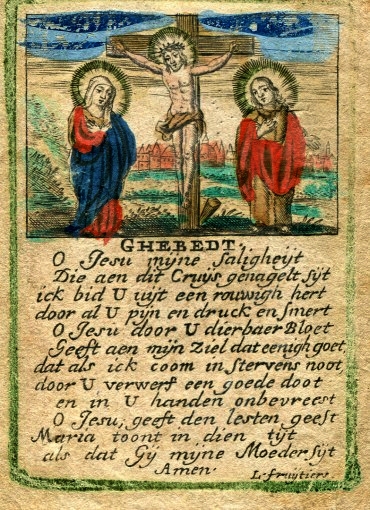 GHEBEDT,
O Jesu mijne saligheijt
Die aen dit Cruijs genagelt sijt
ick bid U uijt een rouwigh hert
door al U pijn en druck en smert
O Jesu door U dierbaer Bloet
Geeft aen mijn Ziel dat eenigh goet,
dat als ick coom in stervens noot,
door U verwerf een goede doot
en in U handen onbevreest
O Jesu, geeft den lesten geest
Maria toont in dien tijt
als dat Gij mijne Moeder sijt
Amen.
L. fruijtiers